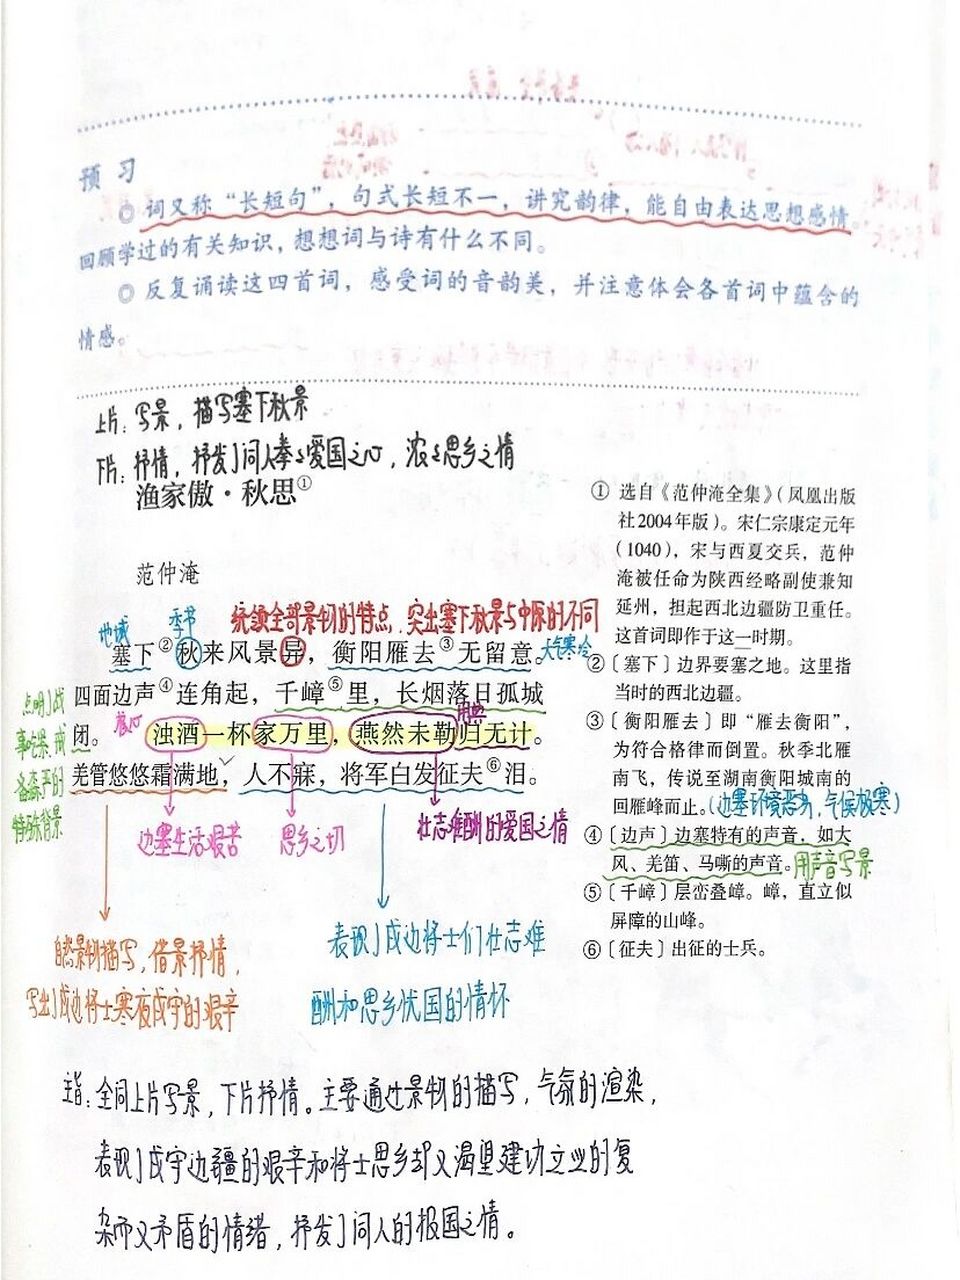 预 习
◎ 词又称“长短句”，句式长短不一，讲究韵律，能自由表达思想感情
回顾学过的有关知识，想想词与诗有什么不同。
◎ 反复诵读这四首词，感受词的音韵美，并注意体会各首词中蕴含的
情感。
上片：写景，描写塞下秋景
下片：抒情，抒发了词人拳拳爱国之心，浓浓思乡之情
渔家傲·秋思①
范仲淹
地域 季节 统领全部景物的特点，突出塞下秋景与中原的不同
塞下②秋来风景异，衡阳雁去③无留意。天气寒冷
四面边声④连角起，千嶂⑤里，长烟落日孤城
闭。 浊酒一杯家万里，燕然未勒归无计。
用典
羌管悠悠霜满地，人不寐，将军白发征夫⑥泪。
点明了战
事吃紧、戒
备森严的
特殊背景
边塞生活艰苦 思乡之切 壮志难酬的爱国之情
自然景物描写，借景抒情，
写出了戍边将士寒夜戍守的艰辛
表现了戍边将士们壮志难
酬和思乡忧国的情怀
① 选自《范仲淹全集》（凤凰出版
社2004年版）。宋仁宗康定元年
（1040），宋与西夏交兵，范仲
淹被任命为陕西经略副使兼知
延州，担起西北边疆防卫重任。
这首词即作于这一时期。
②〔塞下〕边界要塞之地。这里指
当时的西北边疆。
③〔衡阳雁去〕即“雁去衡阳”，
为符合格律而倒置。秋季北雁
南飞，传说至湖南衡阳城南的
回雁峰而止。（边塞环境恶劣，气候极寒）
④〔边声〕边塞特有的声音，如大
风、羌笛、马嘶的声音。用声音写景
⑤〔千嶂〕层峦叠嶂。嶂，直立似
屏障的山峰。
⑥〔征夫〕出征的士兵。
主旨：全词上片写景，下片抒情。主要通过景物的描写，气氛的渲染，
表现了戍守边疆的艰辛和将士思乡却又渴望建功立业的复
杂而又矛盾的情绪，抒发了词人的报国之情。